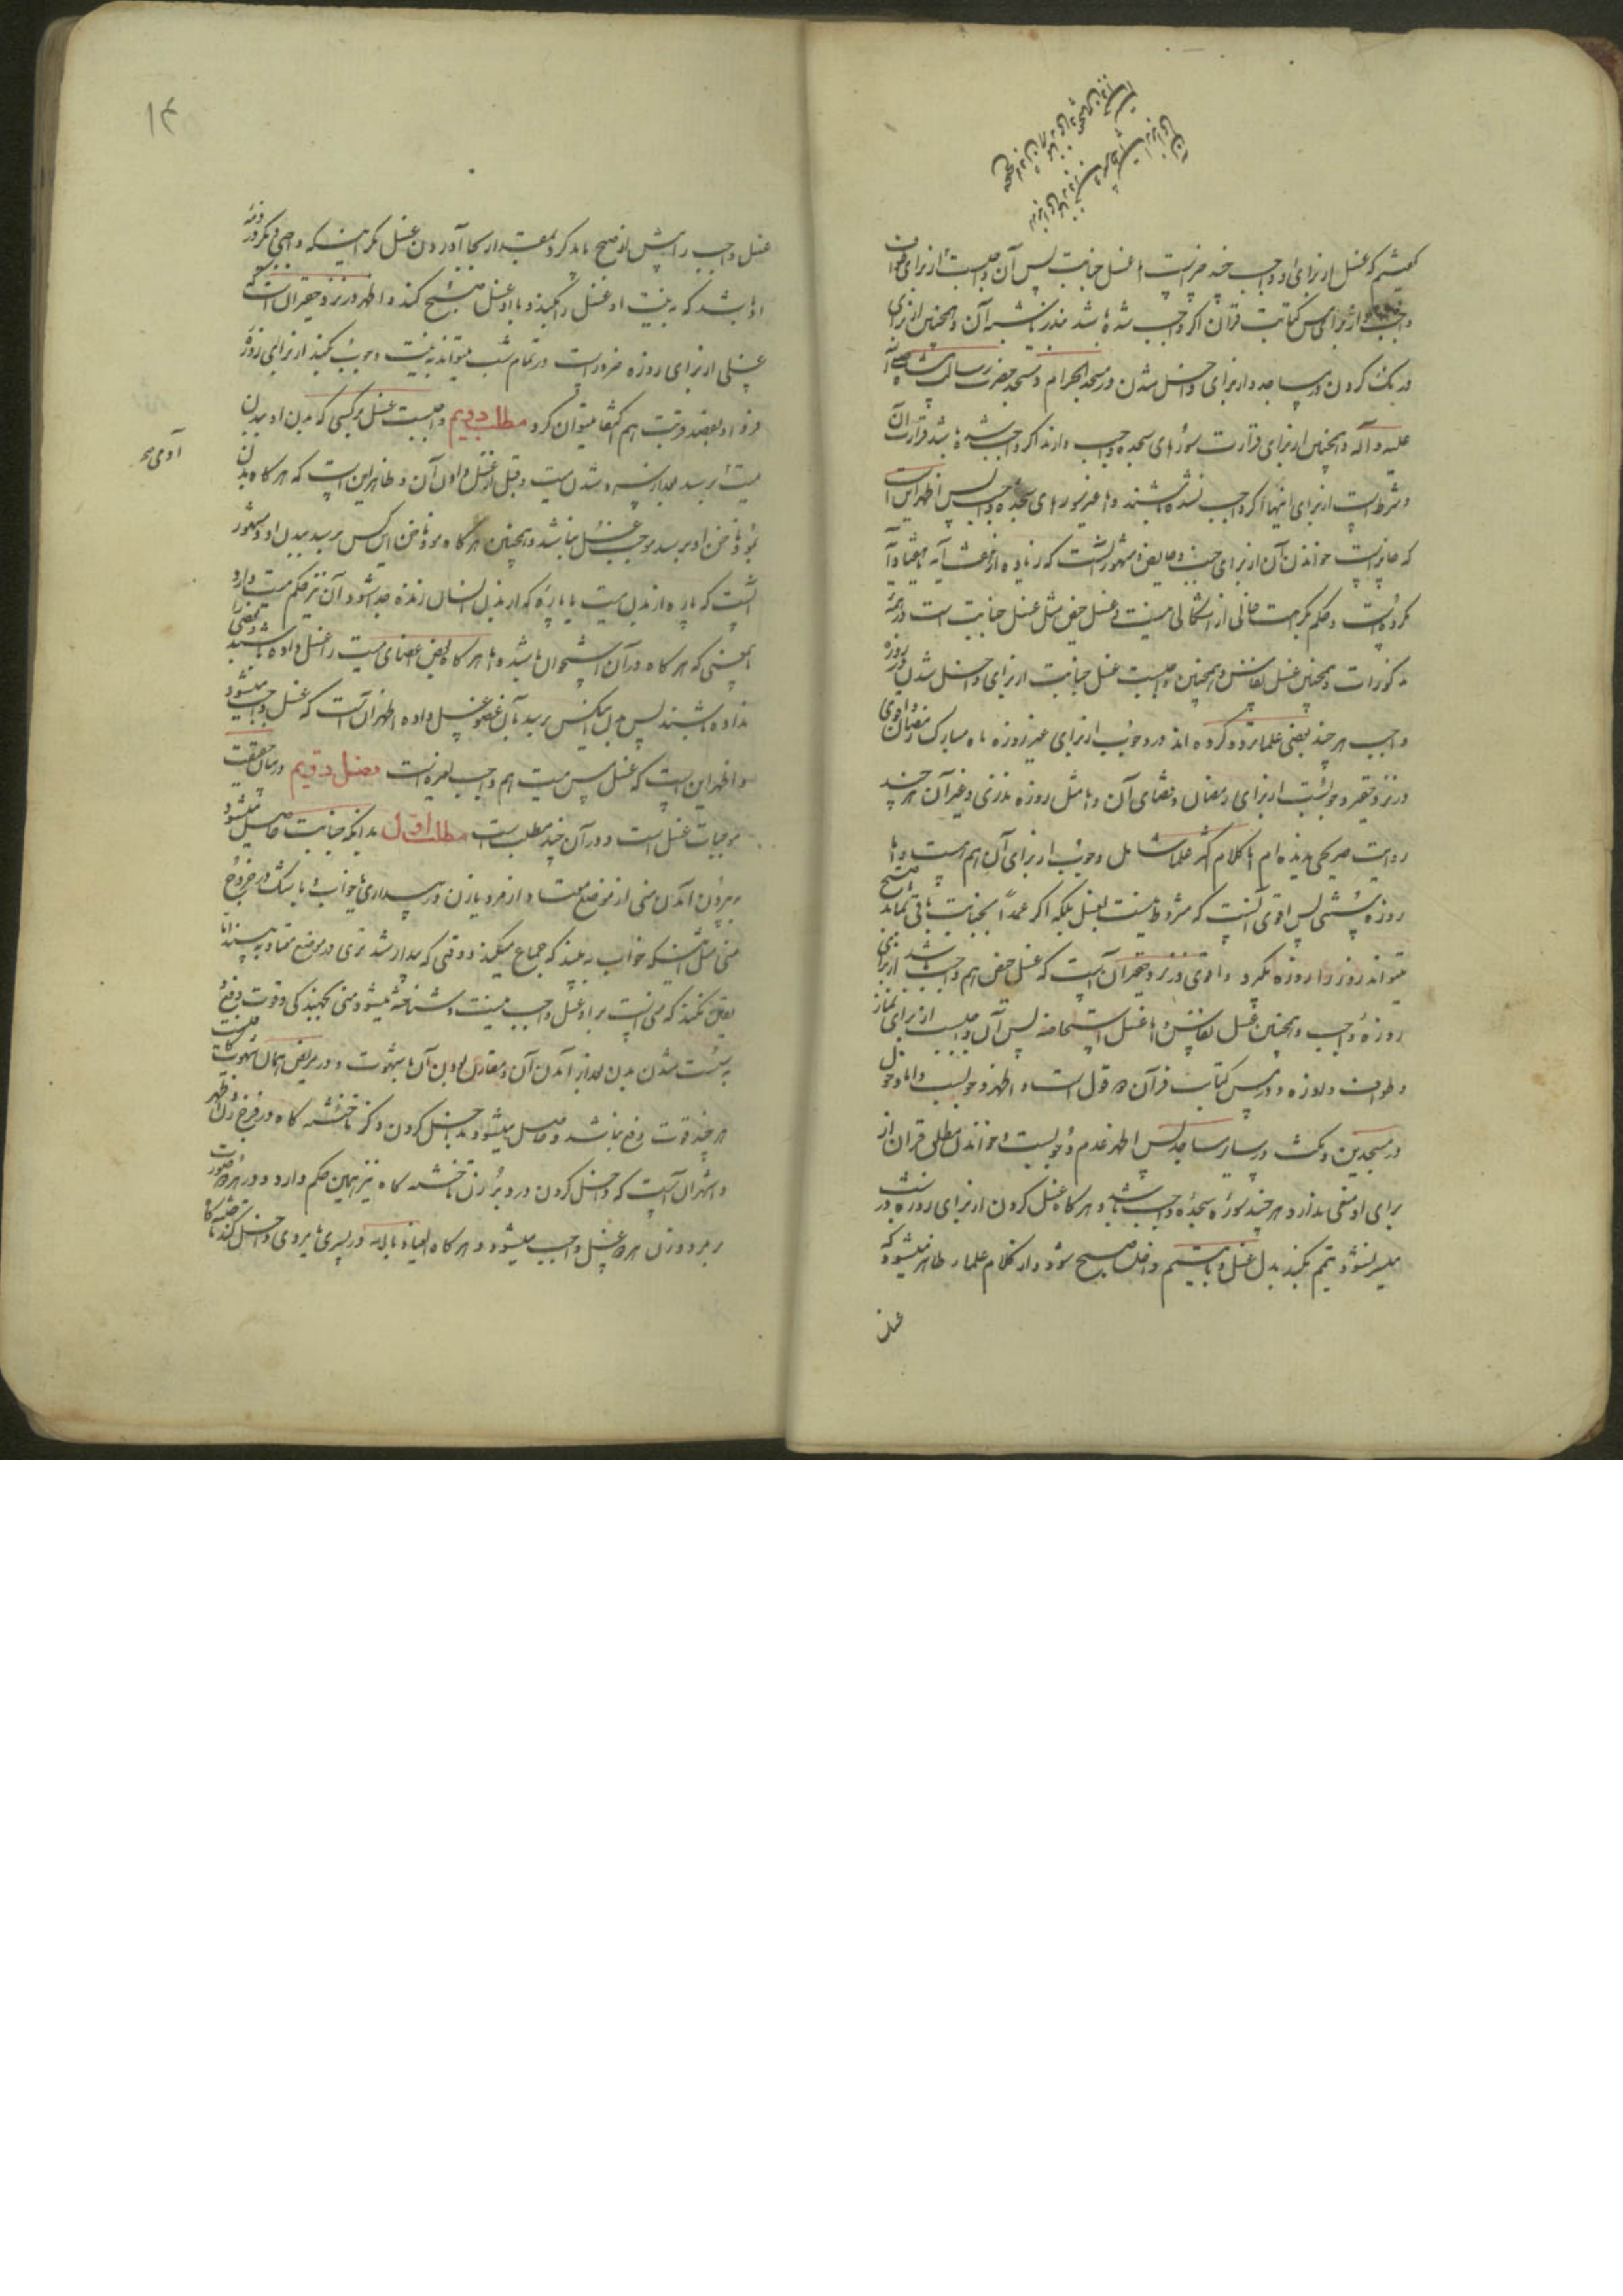 که غسل از برای او واجب چند چیز است اما غسل جنابت پس آن واجبست از برای طواف
واجب و از برای مس کتابت قران اگر واجب شده باشد بنذر و شبه آن و همچنین از برای
درنک کردن در مساجد و از برای داخل شدن در مسجد الحرام و مسجد حضرت رسالت پناه صلی الله
علیه و آله و همچنین از برای قرائت سورهای سجده واجب دارند اگر واجب شده باشد قرائت آن
و شرط است از برای اینها اگر واجب نشده باشند و اما غیر سورهای سجده واجب پس اظهر این است
که جایز است خواندن آن از برای جنب و حایض و مشهور آنست که زیاده از هفت آیه
مکروه است و حکم بکراهت خالی از اشکالی نیست و غسل حیض مثل غسل جنابت است در همه
مذکورات و همچنین غسل نفاس و همچنین واجبست غسل جنابت از برای داخل شدن در روزه
واجب هر چند بعضی علما تردد کرده اند در وجوب از برای غیر روزه ماه مبارک رمضان و اقوی
در نزد حقیر وجوبست از برای رمضان و قضای آن و اما مثل روزه نذری و غیر آن هر چند
روایت صریحی ندیده ام اما کلام اکثر علما شامل وجوب از برای آن هم هست و اما
روزه سنتی پس اقوی آنست که مشروط نیست بغسل بلکه اگر عمداً بجنابت باقی بماند تا صبح
میتواند روز را روزه بگیرد و اقوی در نزد حقیر آن است که غسل حیض هم واجب باشد از برای
روزه واجب و همچنین غسل نفاس و اما غسل استحاضه پس آن واجبست از برای نماز
و طواف و روزه و در مس کتابت قرآن دو قول است و اظهر وجوبست و اما دخول
در مسجدین و مکث در سایر مساجد پس اظهر عدم وجوبست و خواندن مطلق قران از
برای او منعی ندارد هر چند سوره سجده واجب باشد و هر گاه غسل کردن از برای روزه در شب
میسر نشود تیمم بکند بدل غسل و با تیمم داخل صبح شود و از کلام علما ظاهر میشود که
غسل
۱۴
غسل واجب را پیش از صبح باید کرد بمقدار بجا آوردن غسل مگر اینکه واجبی دیگر در ذمه
او باشد که به نیت او غسل را بکند و با او غسل صبح کند و اظهر در نزد حقیر آن است که
غسلی از برای روزه ضرور است در تمام شب میتواند به نیت وجوب بکند از برای روزه
فردا و بقصد قربت هم اکتفا میتوان کرد مطلب دویم واجبست غسل بر کسی که بدن او ببدن
آدمی
میت برسد بعد از سرد شدن میت و قبل از غسل دادن آن و ظاهر این است که هر گاه بدن
بمو و ناخن او برسد موجب غسل نباشد و همچنین هر گاه مو و ناخن این کس برسد ببدن او و مشهور
آنست که پاره از بدن میت یا پاره که از بدن انسان زنده جدا شود آن نیز حکم میت دارد
بمعنی که هر گاه در آن استخوان باشد و اما هر گاه بعض اعضای میت را غسل داده باشند و بعضی
نداده باشند پس بدن اینکس برسد بآن عضو غسل داده اظهر آن است که غسل واجب میشود
و اظهر این است که غسل مس میت هم واجب لغیره است فصل دویم در بیان حقیقت
موجبات غسل است و در آن چند مطلب است مطلب اول بدانکه جنابت حاصل میشود
به بیرون آمدن منی از موضع معتاد از مرد یا زن در بیداری یا خواب و با شک در خروج
منی مثل اینکه خواب به بیند که جماع میکند و وقتی که بیدار شد تری در موضع معتاد به بیند اما
یقین نکند که منی است بر او غسل واجب نیست و شناخته میشود منی بجهندگی و قوت دفع
به سست شدن بدن بعد از آمدن آن و مقارن بودن آن با شهوت و در مریض همان شهوت کافیست
هر چند قوت دفع نباشد و حاصل میشود بداخل کردن ذکر تا ختنه گاه در فرج زن و اظهر
و اشهر آن است که داخل کردن در دبر زن تا ختنه گاه نیز همین حکم دارد و در هر دو صورت
بر مرد و زن هر دو غسل واجب میشود و هر گاه العیاذ بالله در پسری یا مردی داخل کند تا ختنه گاه